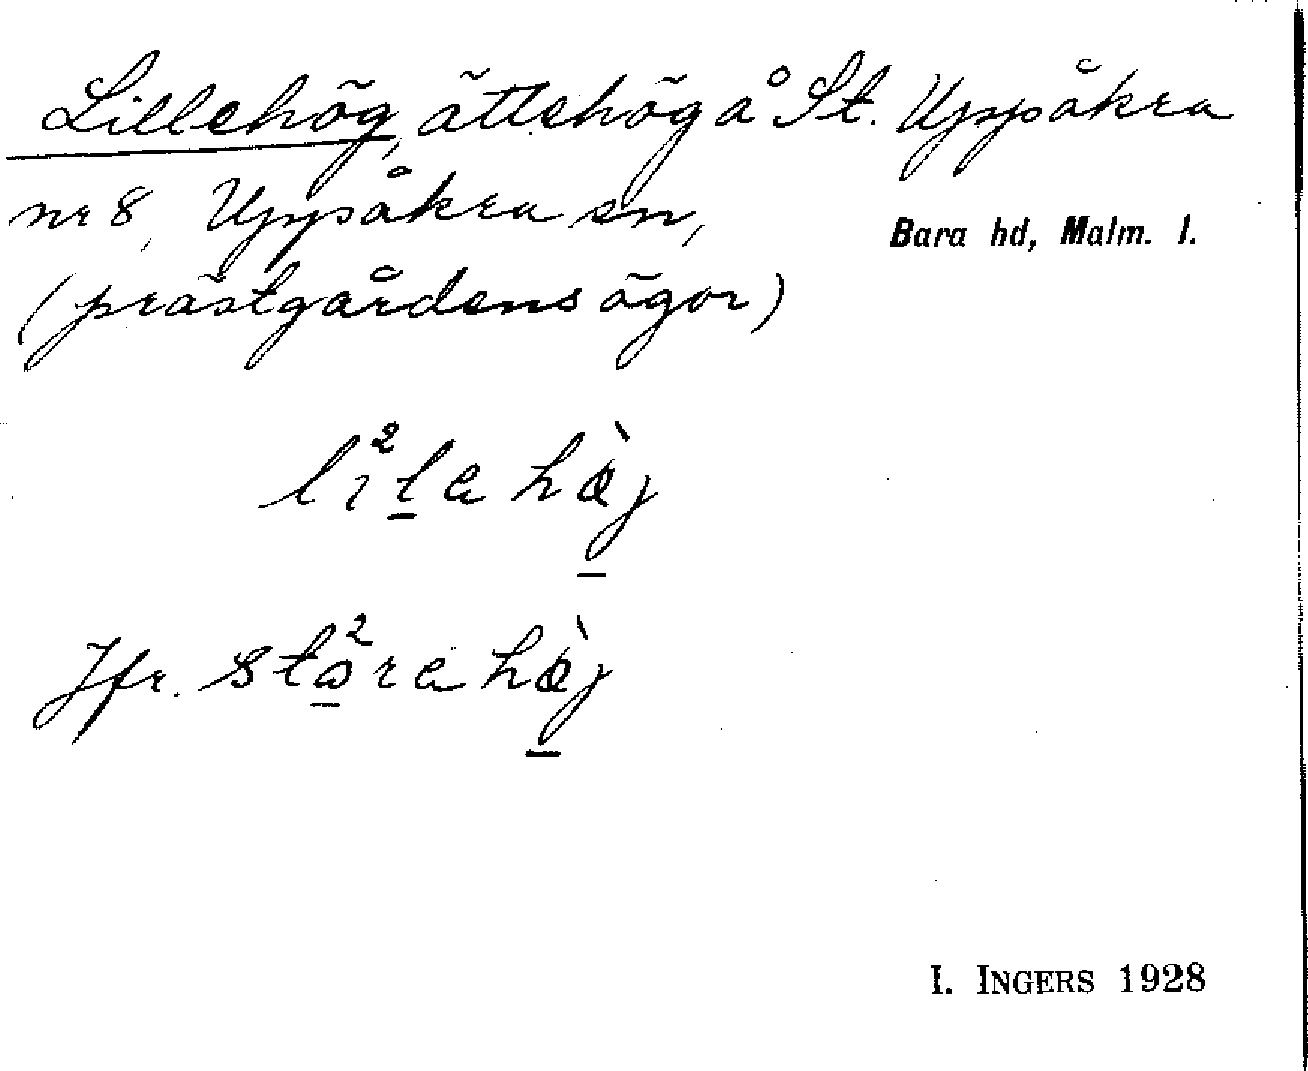 Lillehög, ättehög å St. Uppåkra
nr 8, Uppåkra sn,
Bara hd, Malm. l.
(prästgårdens ägor)
li²lahàj
Jfr. sto²rahàj
I. INGERS 1928